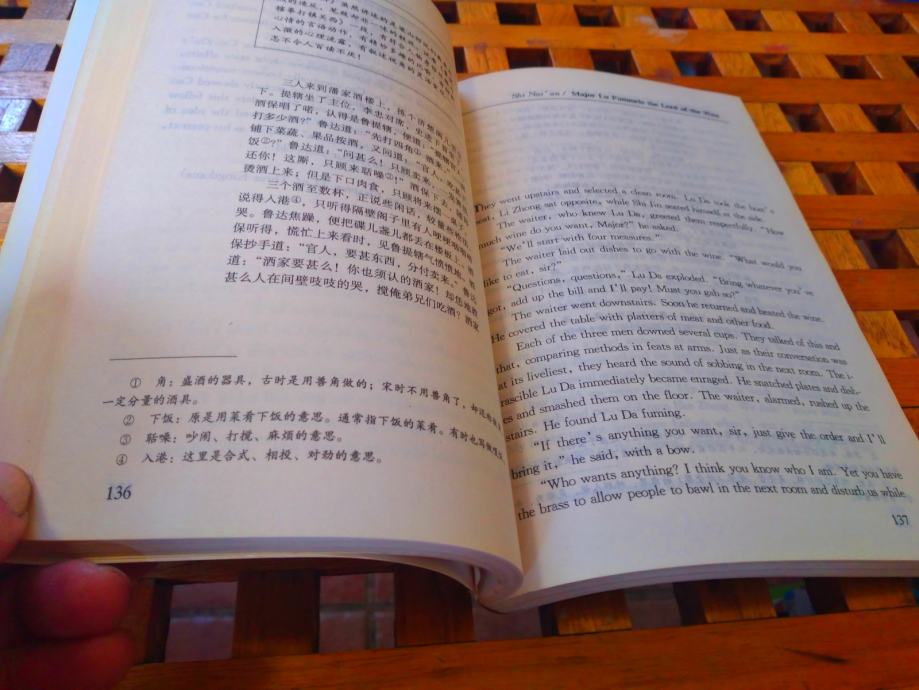 怎不令人百读不厌！
三人来到潘家酒楼上，拣个济楚阁儿
下。提辖坐了主位，李忠对席，史进下首
酒保唱了喏，认得是鲁提辖，便道：“提辖
打多少酒？”鲁达道：“先打四角①酒来。”
铺下菜蔬、果品按酒，又问道：“官人，吃甚下
饭②？”鲁达道：“问甚么！
还你！这厮，只顾来聒噪③！”酒保
烫酒上来；但是下口肉食，只顾将来摆
三个酒至数杯，正说些闲话，较量些枪法，
说得入港④，只听得隔壁阁子里有人哽哽咽咽啼
哭。鲁达焦躁，便把碟儿盏儿都丢在楼板上。酒
保听得，慌忙上来看时，见鲁提辖气愤愤地。酒
保抄手道：“官人，要甚东西，分付卖来。”鲁达
道：“洒家要甚么！你也须认的洒家！却恁地教
甚么人在间壁吱吱的哭，搅俺弟兄们吃酒？洒家
① 角：盛酒的器具，古时是用兽角做的；宋时不用兽角了，
一定分量的酒具。
② 下饭：原是用菜肴下饭的意思。通常指下饭的菜肴。有时也写做
③ 聒噪：吵闹、打搅、麻烦的意思。
④ 入港：这里是合式、相投、对劲的意思。
136
Shi Nai'an / Major Lu Pummels the Lord of the West
They went upstairs and selected a clean room. Lu Da took the host's
seat, Li Zhong sat opposite, while Shi Jin seated himself at the side.
The waiter, who knew Lu Da, greeted them respectfully. "How
much wine do you want, Major?" he asked.
"We'll start with four measures."
The waiter laid out dishes to go with the wine. "What would you
like to eat, sir?"
"Questions, questions," Lu Da exploded. "Bring whatever you've
got, add up the bill and I'll pay! Must you gab so?"
The waiter went downstairs. Soon he returned and heated the wine.
He covered the table with platters of meat and other food.
Each of the three men downed several cups. They talked of this and
that, comparing methods in feats at arms. Just as their conversation was
at its liveliest, they heard the sound of sobbing in the next room. The i-
rascible Lu Da immediately became enraged. He snatched plates and dish-
es and smashed them on the floor. The waiter, alarmed, rushed up the
stairs. He found Lu Da fuming.
"If there's anything you want, sir, just give the order and I'll
bring it," he said, with a bow.
"Who wants anything? I think you know who I am. Yet you have
the brass to allow people to bawl in the next room and disturb us while
137